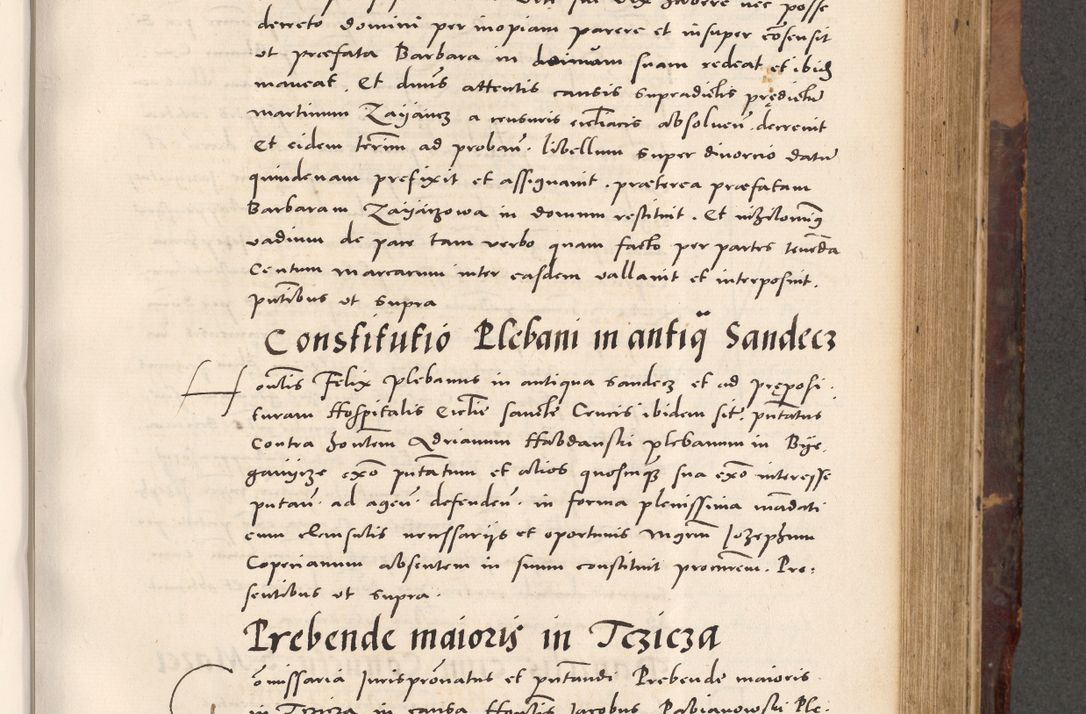 decreto domini per inopiam parere et insuper cōsensit
ut præfata Barbara in domum suam redeat et ibidē
maneat. Et dnūs attentis causis supradictis prędictū
martinum Zaÿancz a censuris ecclīacis absolven̄ decrevit
Et eidem terīm ad proban̄. libellum super divorcio datū
quindenam prefixit et assignavit. præterea præfatam
Barbaram Zaÿanczowa in domum restituit. Et nihilominꝰ
vadium de pace tam verbo quam facto per partes tenēda
Centum marcarum inter easdem vallavit et interposuit.
pn̄tibus ut supra
Constitutio Plebani in antiq̄ Sandecz
Honn̄lis Felix plebanus in antiqua sandecz et ad pręposi-
turam Hospitalis Ecclīe sanctæ Crucis ibidem sit. pn̄tatus
Contra hon̄tem Adrianum Habdanski plebanum in Bye-
ganycze exn̄o pn̄tatum et alios quoscunqꝫ sua exn̄o interesse
putan̄. ad agen̄. defenden̄. in forma plenissima mādati
cum clausulis necessarijs et oportunis Mgrm̄ Jozephum
Coperianum absentem in suum constituit procūrem. Pre-
sentibus ut supra.
Prebende maioris in Tczicza
Comissaria Jurisprōnatus et pn̄tandi Prebende maioris
in Tczicza in causa Hon̄lis Jacobus Pabianowski Ple-